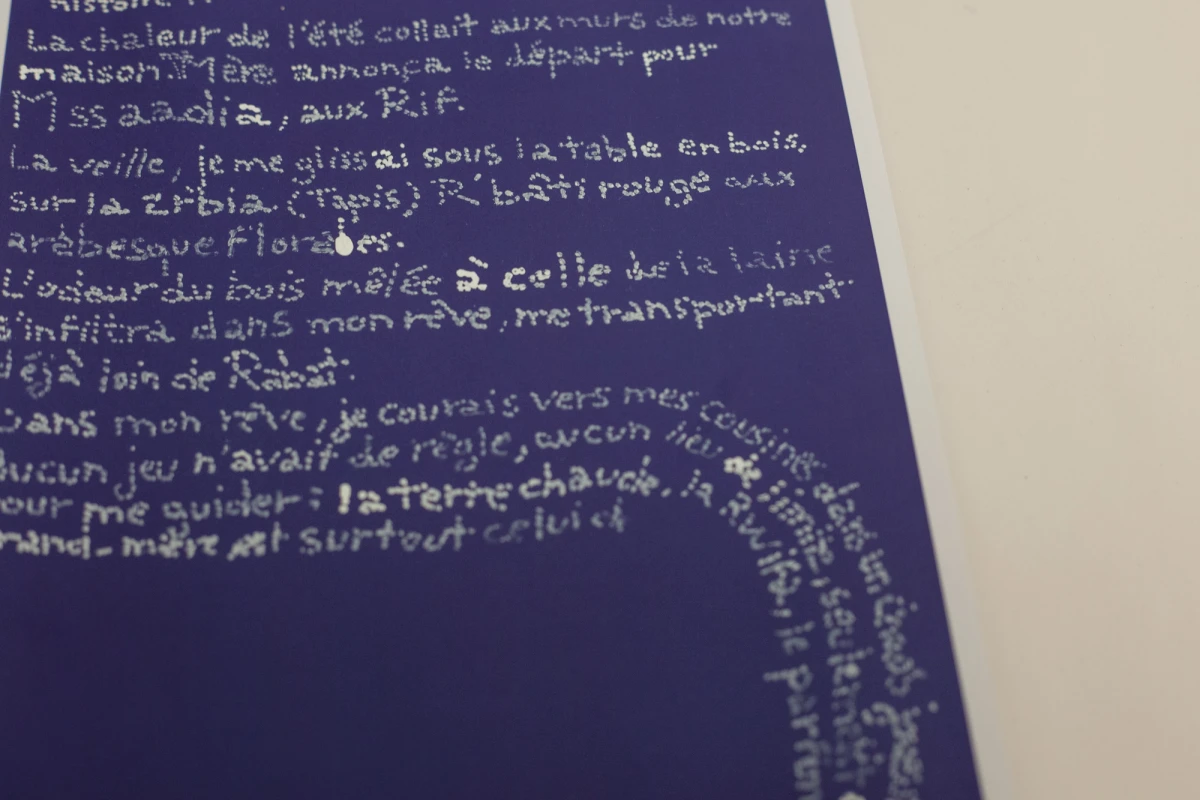 La chaleur de l'été collait aux murs de notre
maison. Mère annonça le départ pour
Mssaadia, aux Rif.
La veille, je me glissai sous la table en bois,
sur la Zrbia (Tapis) R'bâti rouge aux
arabesque Florales.
L'odeur du bois mêlée à celle de la laine
s'infiltra dans mon rêve, me transportant
déjà loin de Rabat.
Dans mon rêve, je courais vers mes cousines dans un chaos
Aucun jeu n'avait de règle, aucun lieu de limite, seulement
pour me guider : la terre chaude, la le parfum
grand-mère et surtout celui d